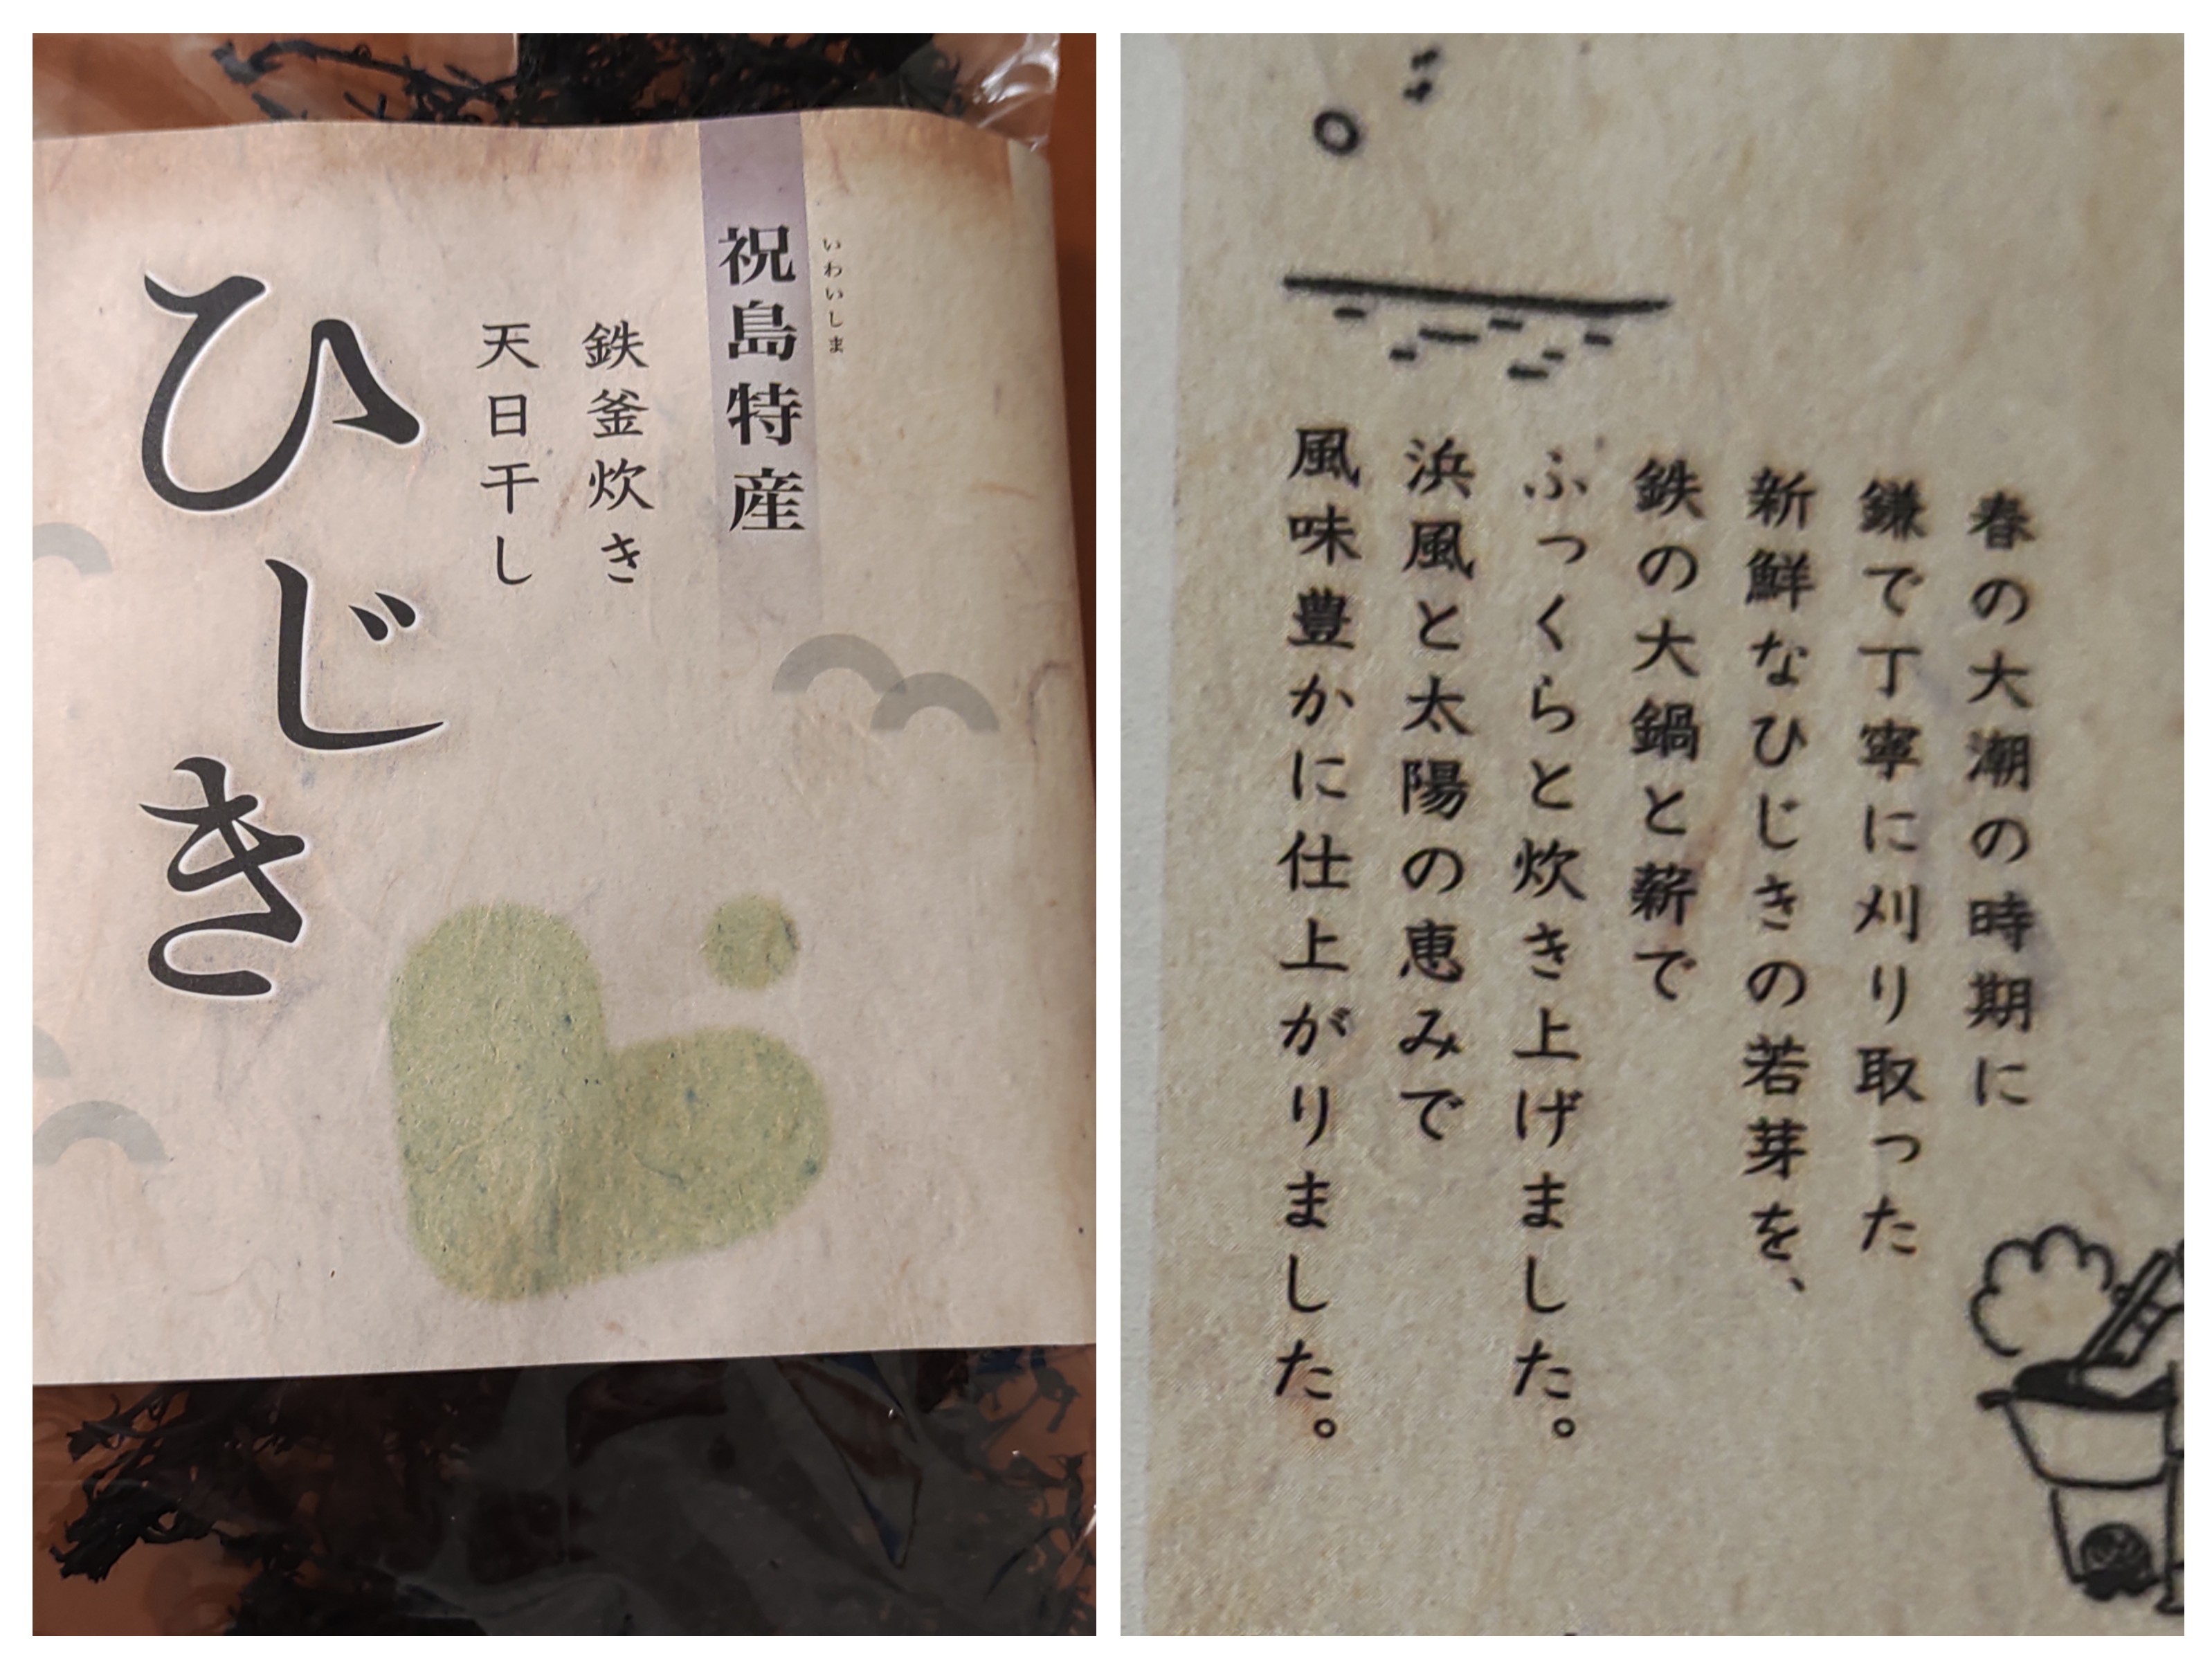 祝島特産
いわいしま
鉄釜炊き
天日干し
ひじき
春の大潮の時期に
鎌で丁寧に刈り取った
新鮮なひじきの若芽を、
鉄の大鍋と薪で
ふっくらと炊き上げました。
浜風と太陽の恵みで
風味豊かに仕上がりました。